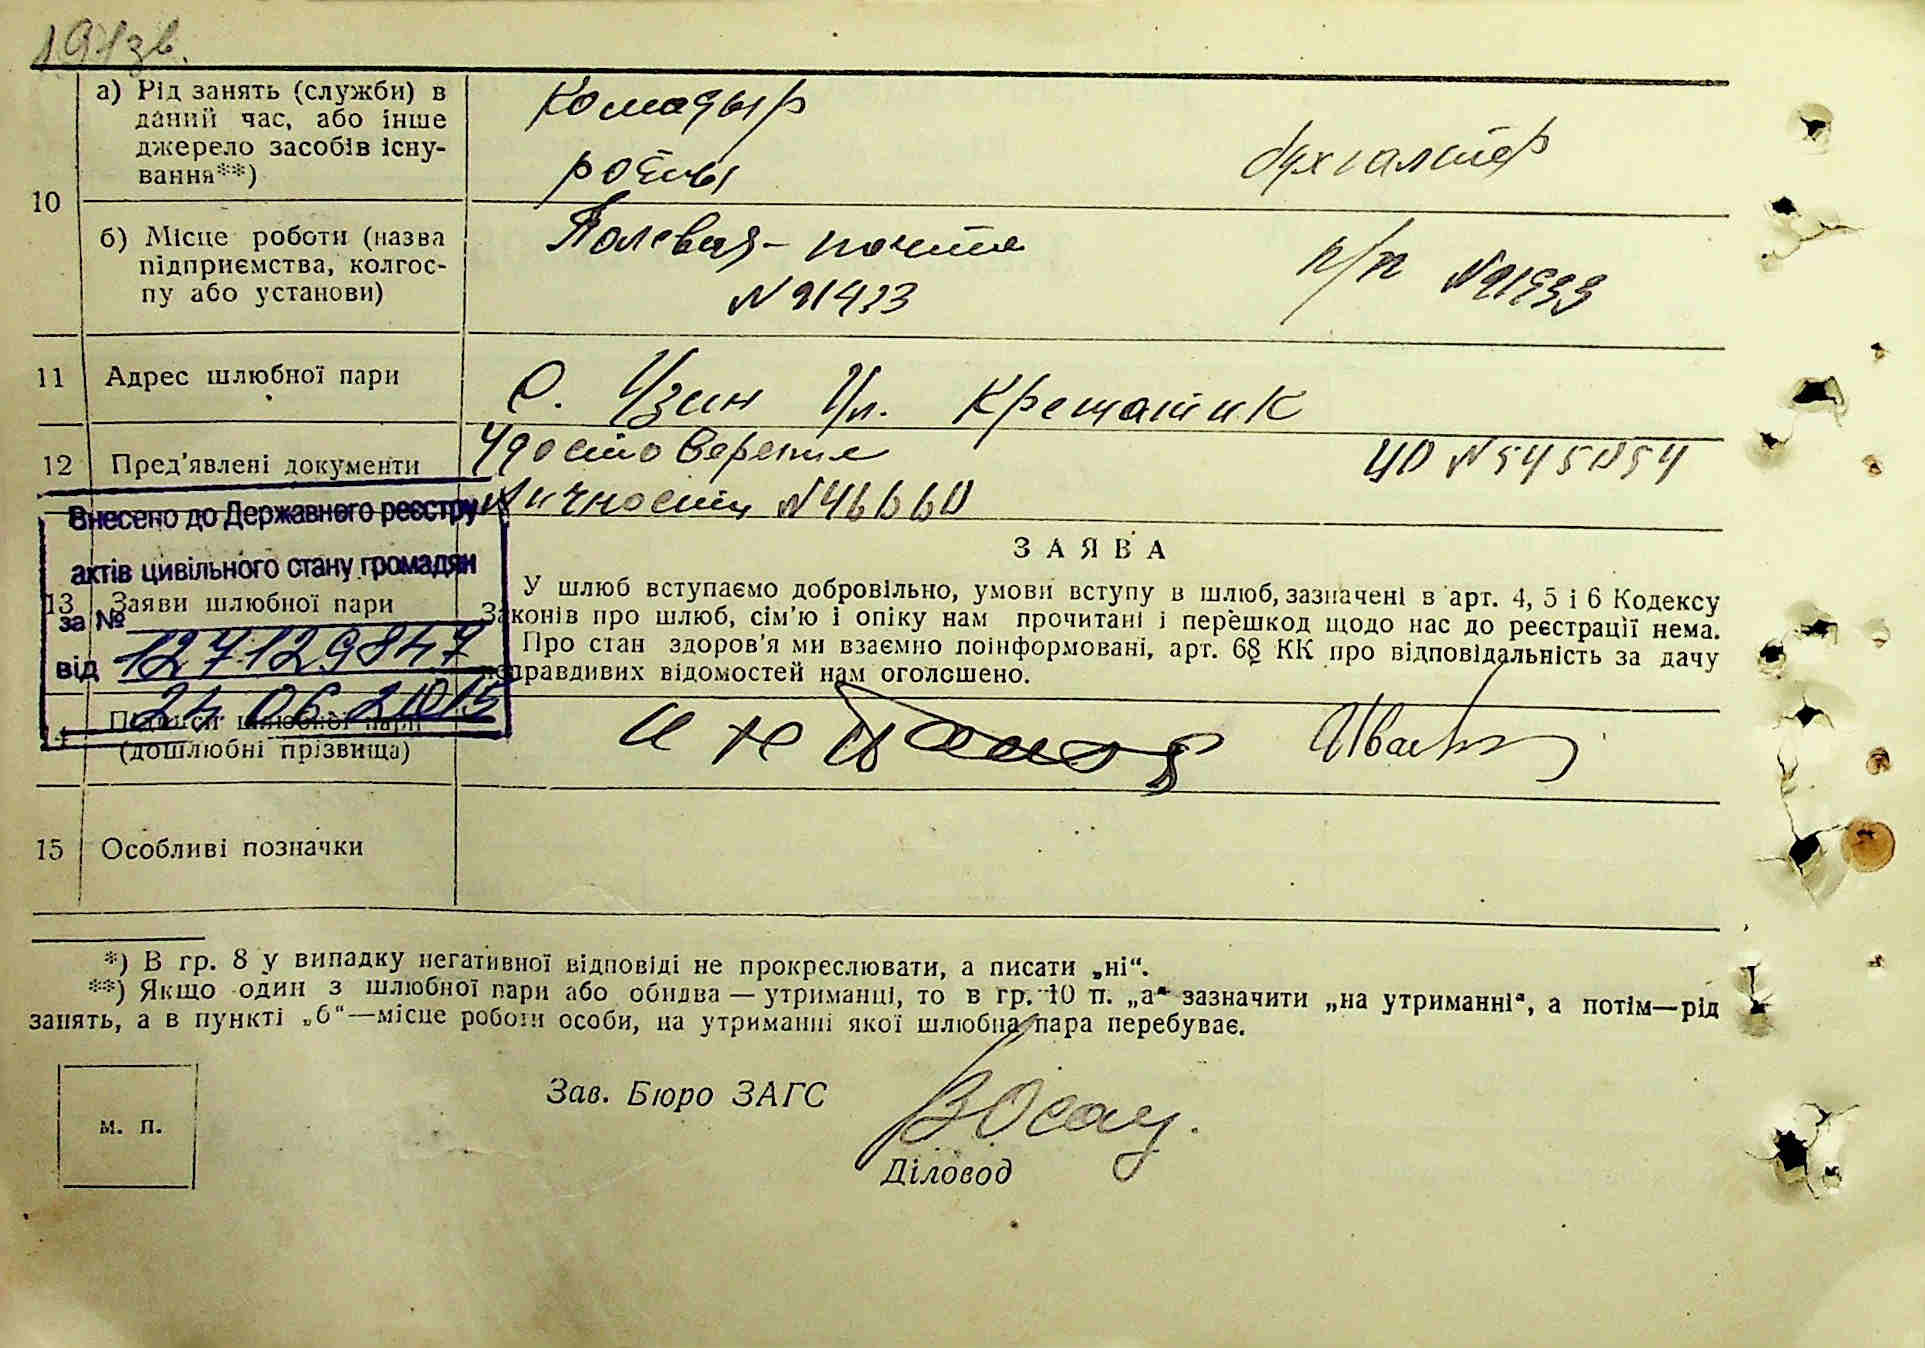 10
а) Рід занять (служби) в
даний час, або інше
джерело засобів існу-
вання**)
Комадыр
роты
бухгалтер
б) Місце роботи (назва
підприємства, колгос-
пу або установи)
Полевая - почта
№ 91433
п/п №91533
11 Адрес шлюбної пари
С. Узин Ул. Крещатик
12 Пред'явлені документи
Удостоверение
личности №46660
УО №545054
Внесено до Державного реєстру
актів цивільного стану громадян
за № 127129847
від 24.06.2015
13 Заяви шлюбної пари
ЗАЯВА
У шлюб вступаємо добровільно, умови вступу в шлюб, зазначені в арт. 4, 5 і 6 Кодексу
Законів про шлюб, сім'ю і опіку нам прочитані і перешкод щодо нас до реєстрації нема.
Про стан здоров'я ми взаємно поінформовані, арт. 68 КК про відповідальність за дачу
неправдивих відомостей нам оголошено.
14 Підписи шлюбної пари
(дошлюбні прізвища)
15 Особливі позначки
*) В гр. 8 у випадку негативної відповіді не прокреслювати, а писати „ні“.
**) Якщо один з шлюбної пари або обидва — утриманці, то в гр. 10 п. „а“ зазначити „на утриманні“, а потім—рід
занять, а в пункті „б“—місце роботи особи, на утриманні якої шлюбна пара перебуває.
м. п.
Зав. Бюро ЗАГС
Діловод